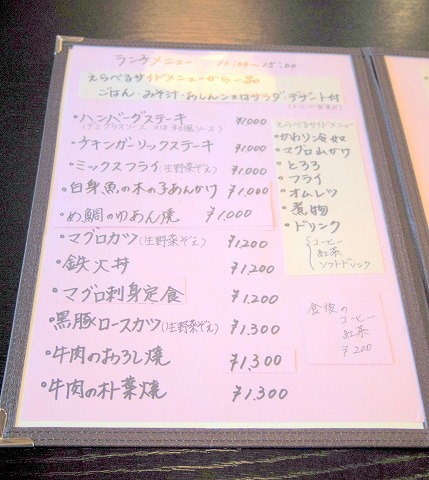 ランチメニュー 11:00~15:00
えらべるサイドメニューから一品
ごはん・みそ汁・おしんこ又はサラダ・デザート付
・ハンバーグステーキ ¥1,000
(デミグラスソース 又は 和風ソース)
・チキンガーリックステーキ ¥1,000
・ミックスフライ(生野菜ぞえ) ¥1,000
・白身魚の木の子あんかけ ¥1,000
・め鯛のゆあん焼 ¥1,000
・マグロカツ(生野菜ぞえ) ¥1,200
・鉄火丼 ¥1,200
・マグロ刺身定食 ¥1,200
・黒豚ロースカツ(生野菜ぞえ) ¥1,300
・牛肉のおろし焼 ¥1,300
・牛肉の朴葉焼 ¥1,300
えらべるサイドメニュー
・かわり冷奴
・マグロ山かけ
・とろろ
・フライ
・オムレツ
・煮物
・ドリンク
コーヒー
紅茶
ソフトドリンク
食後の
コーヒー
紅茶
¥200